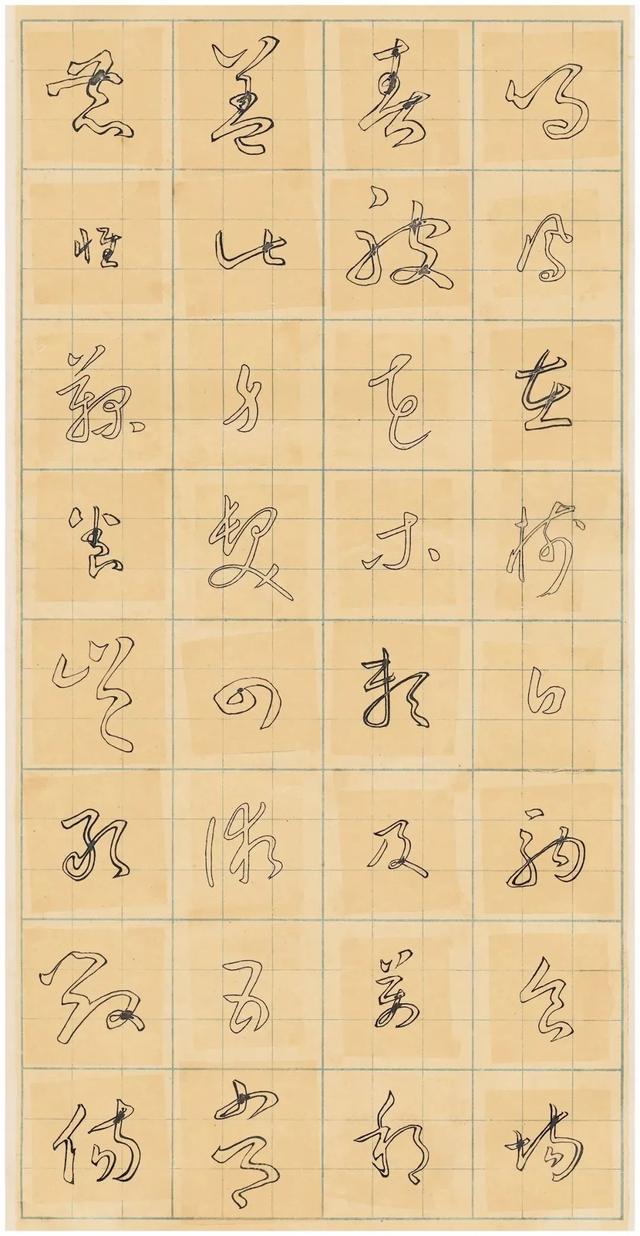 鳴鳳在樹白駒食場
被木賴及萬
蓋此身髮四五常
恭惟鞠養豈敢毀傷